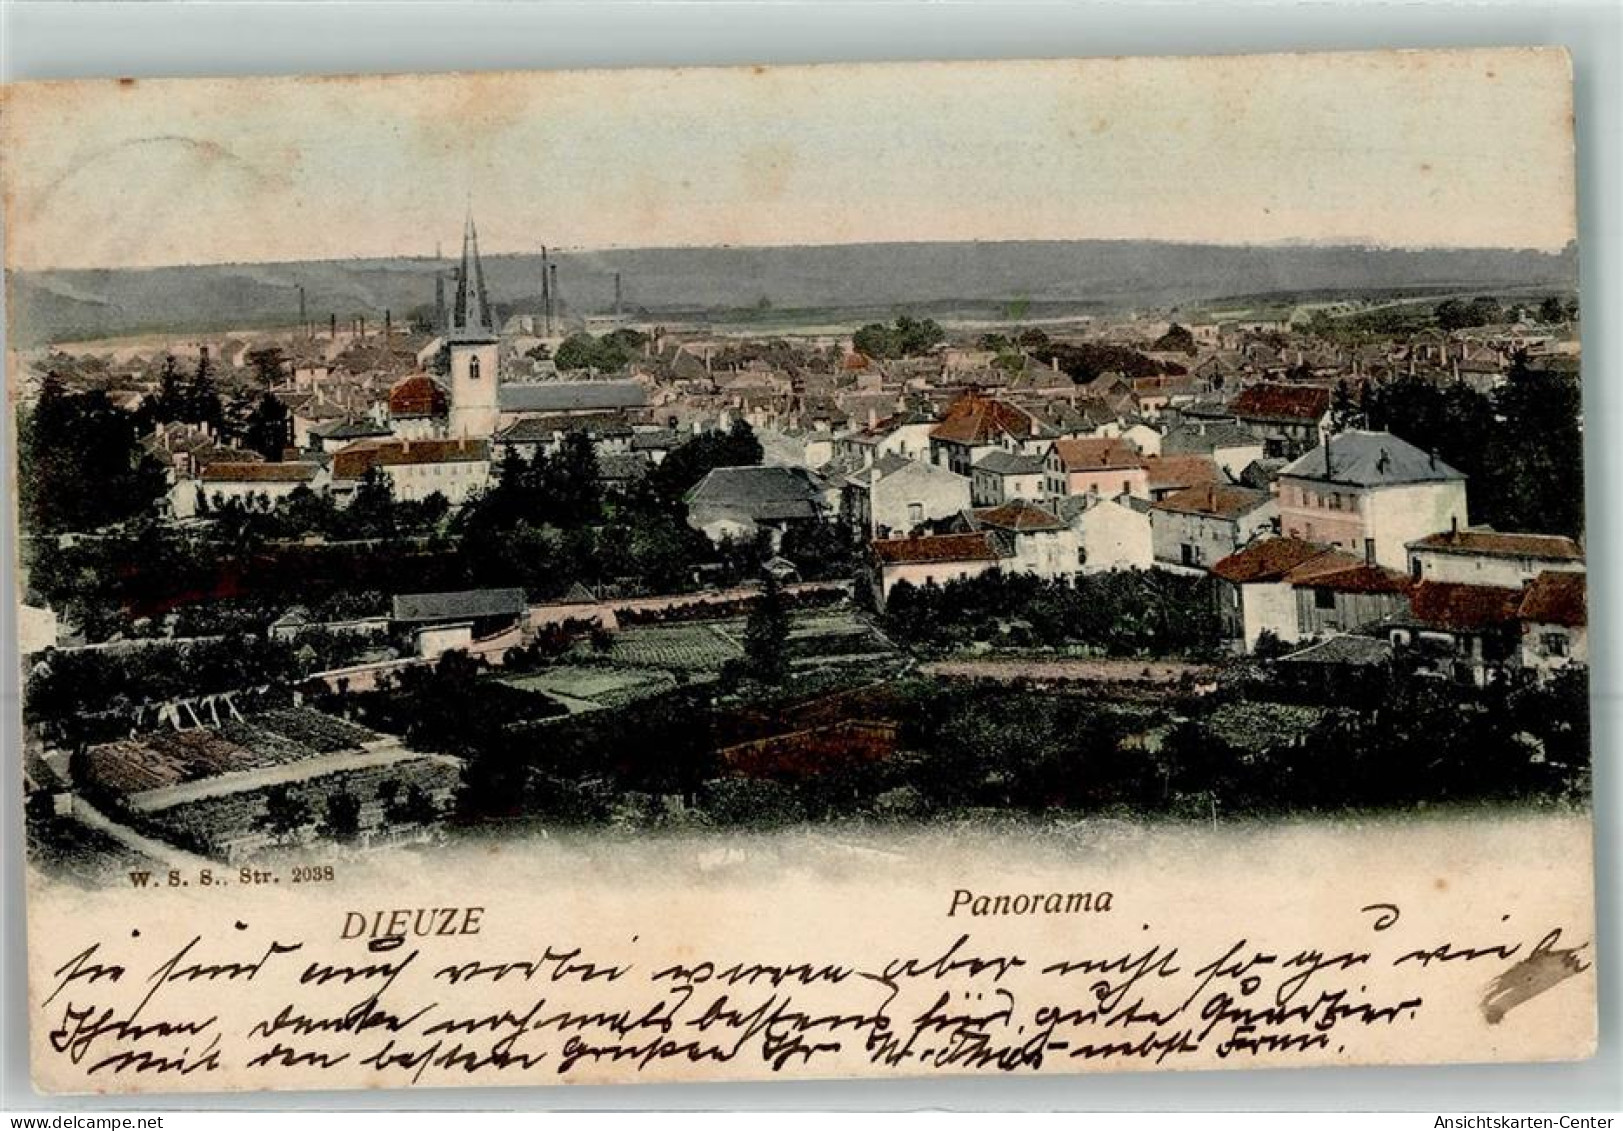 W. S. S., Str. 2038
DIEUZE
Panorama
sie sind auch vorbei waren aber nicht so gu wie b
Ihnen, danke nochmals bestens für gute Quartier.
Mit den besten Grüßen Ihr nebst Frau.
www.delcampe.net
noveau
Ansichtskarten-Center